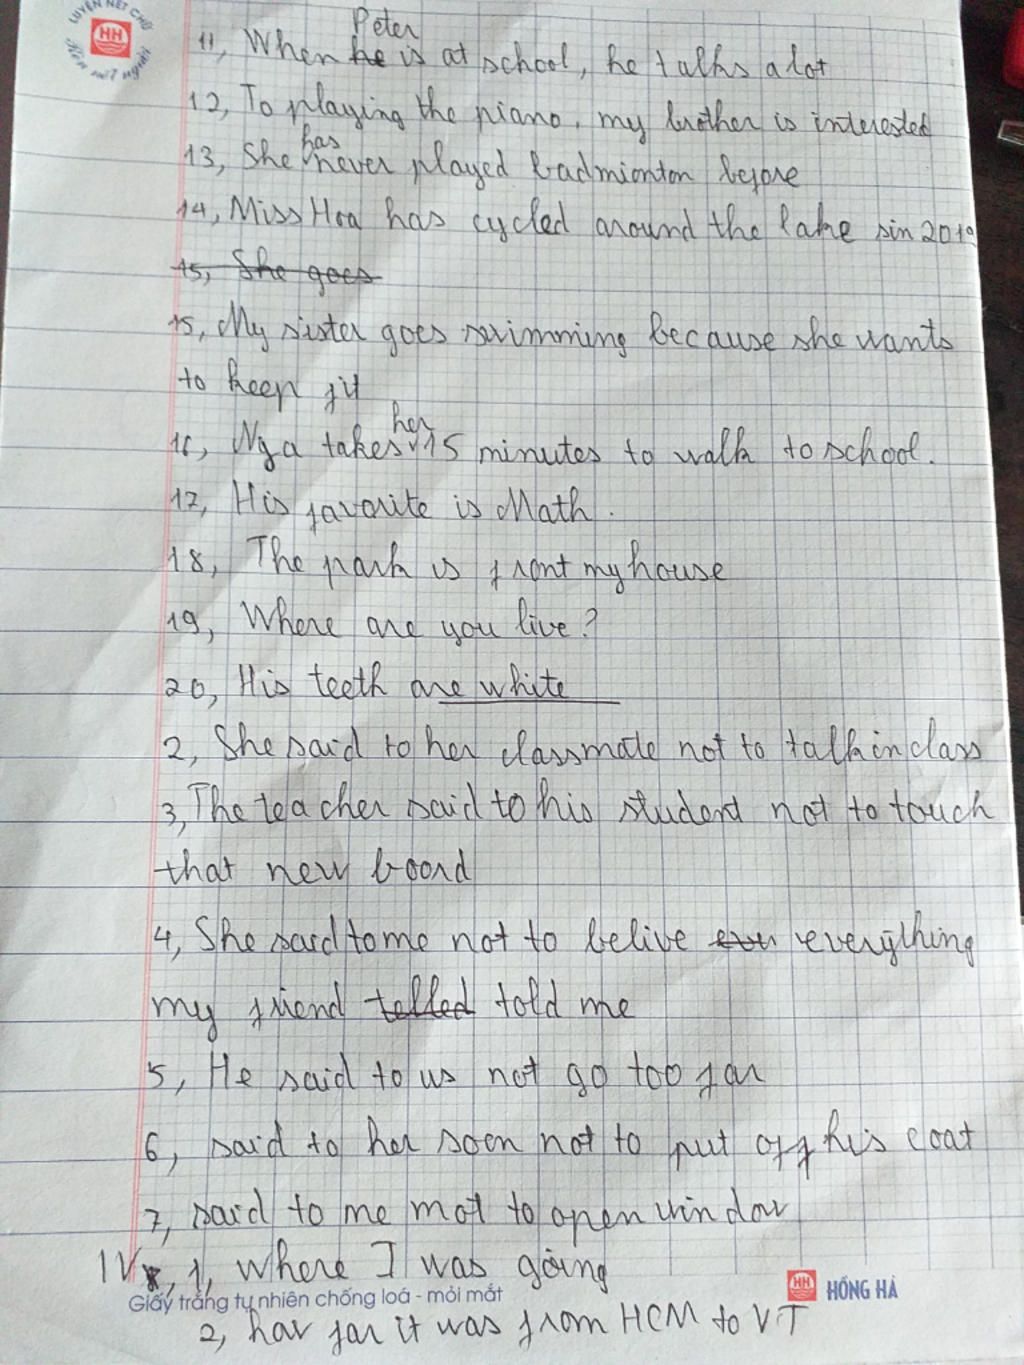 LUYỆN NÉT CHỮ
HH
Rèn nết người
Peter
11, When he is at school, he talks a lot
12, To playing the piano, my brother is interested
has
13, She never played badmionton before
14, Miss Hoa has cycled around the lake sin 2019
15, She goes
15, My sister goes swimming because she wants
to keep fit
her
16, Nga takes 15 minutes to walk to school.
17, His favorite is Math.
18, The park is front my house
19, Where are you live?
20, His teeth are white
2, She said to her classmate not to talk in class
3, The teacher said to his student not to touch
that new board
4, She said to me not to belive everything
my friend telled told me
5, He said to us not go too far
6, said to her soen not to put off his coat
7, said to me mot to open window
IV, 1, where I was going
Giấy trắng tự nhiên chống loá - mỏi mắt
HH HỒNG HÀ
2, how far it was from HCM to VT